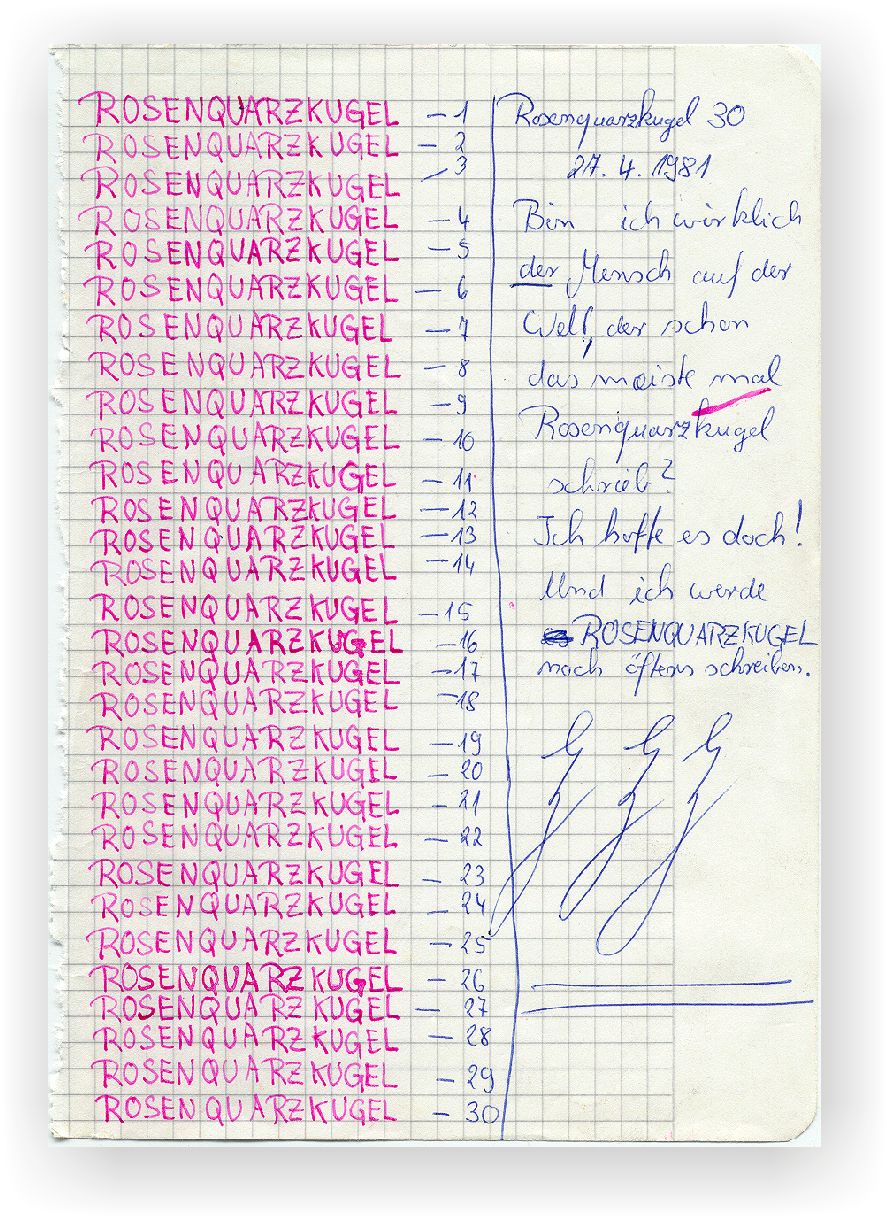 ROSENQUARZKUGEL – 1
ROSENQUARZKUGEL – 2
ROSENQUARZKUGEL – 3
ROSENQUARZKUGEL – 4
ROSENQUARZKUGEL – 5
ROSENQUARZKUGEL – 6
ROSENQUARZKUGEL – 7
ROSENQUARZKUGEL – 8
ROSENQUARZKUGEL – 9
ROSENQUARZKUGEL – 10
ROSENQUARZKUGEL – 11
ROSENQUARZKUGEL – 12
ROSENQUARZKUGEL – 13
ROSENQUARZKUGEL – 14
ROSENQUARZKUGEL – 15
ROSENQUARZKUGEL – 16
ROSENQUARZKUGEL – 17
ROSENQUARZKUGEL – 18
ROSENQUARZKUGEL – 19
ROSENQUARZKUGEL – 20
ROSENQUARZKUGEL – 21
ROSENQUARZKUGEL – 22
ROSENQUARZKUGEL – 23
ROSENQUARZKUGEL – 24
ROSENQUARZKUGEL – 25
ROSENQUARZKUGEL – 26
ROSENQUARZKUGEL – 27
ROSENQUARZKUGEL – 28
ROSENQUARZKUGEL – 29
ROSENQUARZKUGEL – 30
Rosenquarzkugel 30
27. 4. 1981
Bin ich wirklich
der Mensch auf der
Welt, der schon
das meiste mal
Rosenquarzkugel
schrieb?
Ich hoffe es doch!
Und ich werde
ROSENQUARZKUGEL
noch öfters schreiben.